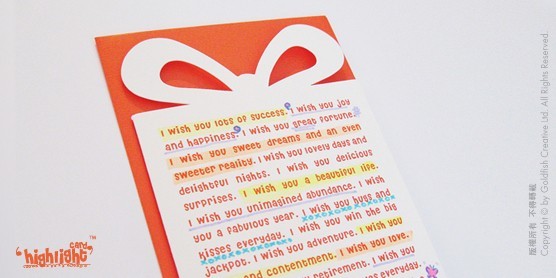 I wish you lots of success. I wish you joy
and happiness. I wish you great fortune.
I wish you sweet dreams and an even
sweeter reality. I wish you lovely days and
delightful nights. I wish you delicious
surprises. I wish you a beautiful life.
I wish you unimagined abundance. I wish
you a fabulous year. I wish you hugs and
xoxoxoxoxoxoxox
kisses everyday. I wish you win the big
xoxoxoxoxoxox
jackpot. I wish you adventure. I wish you
and contentment. I wish you love.
retirement. I wish you
everyday.
"highlight" card ™
版權所有 不得轉載
Copyright © by Goldfish Creative Ltd. All Rights Reserved.